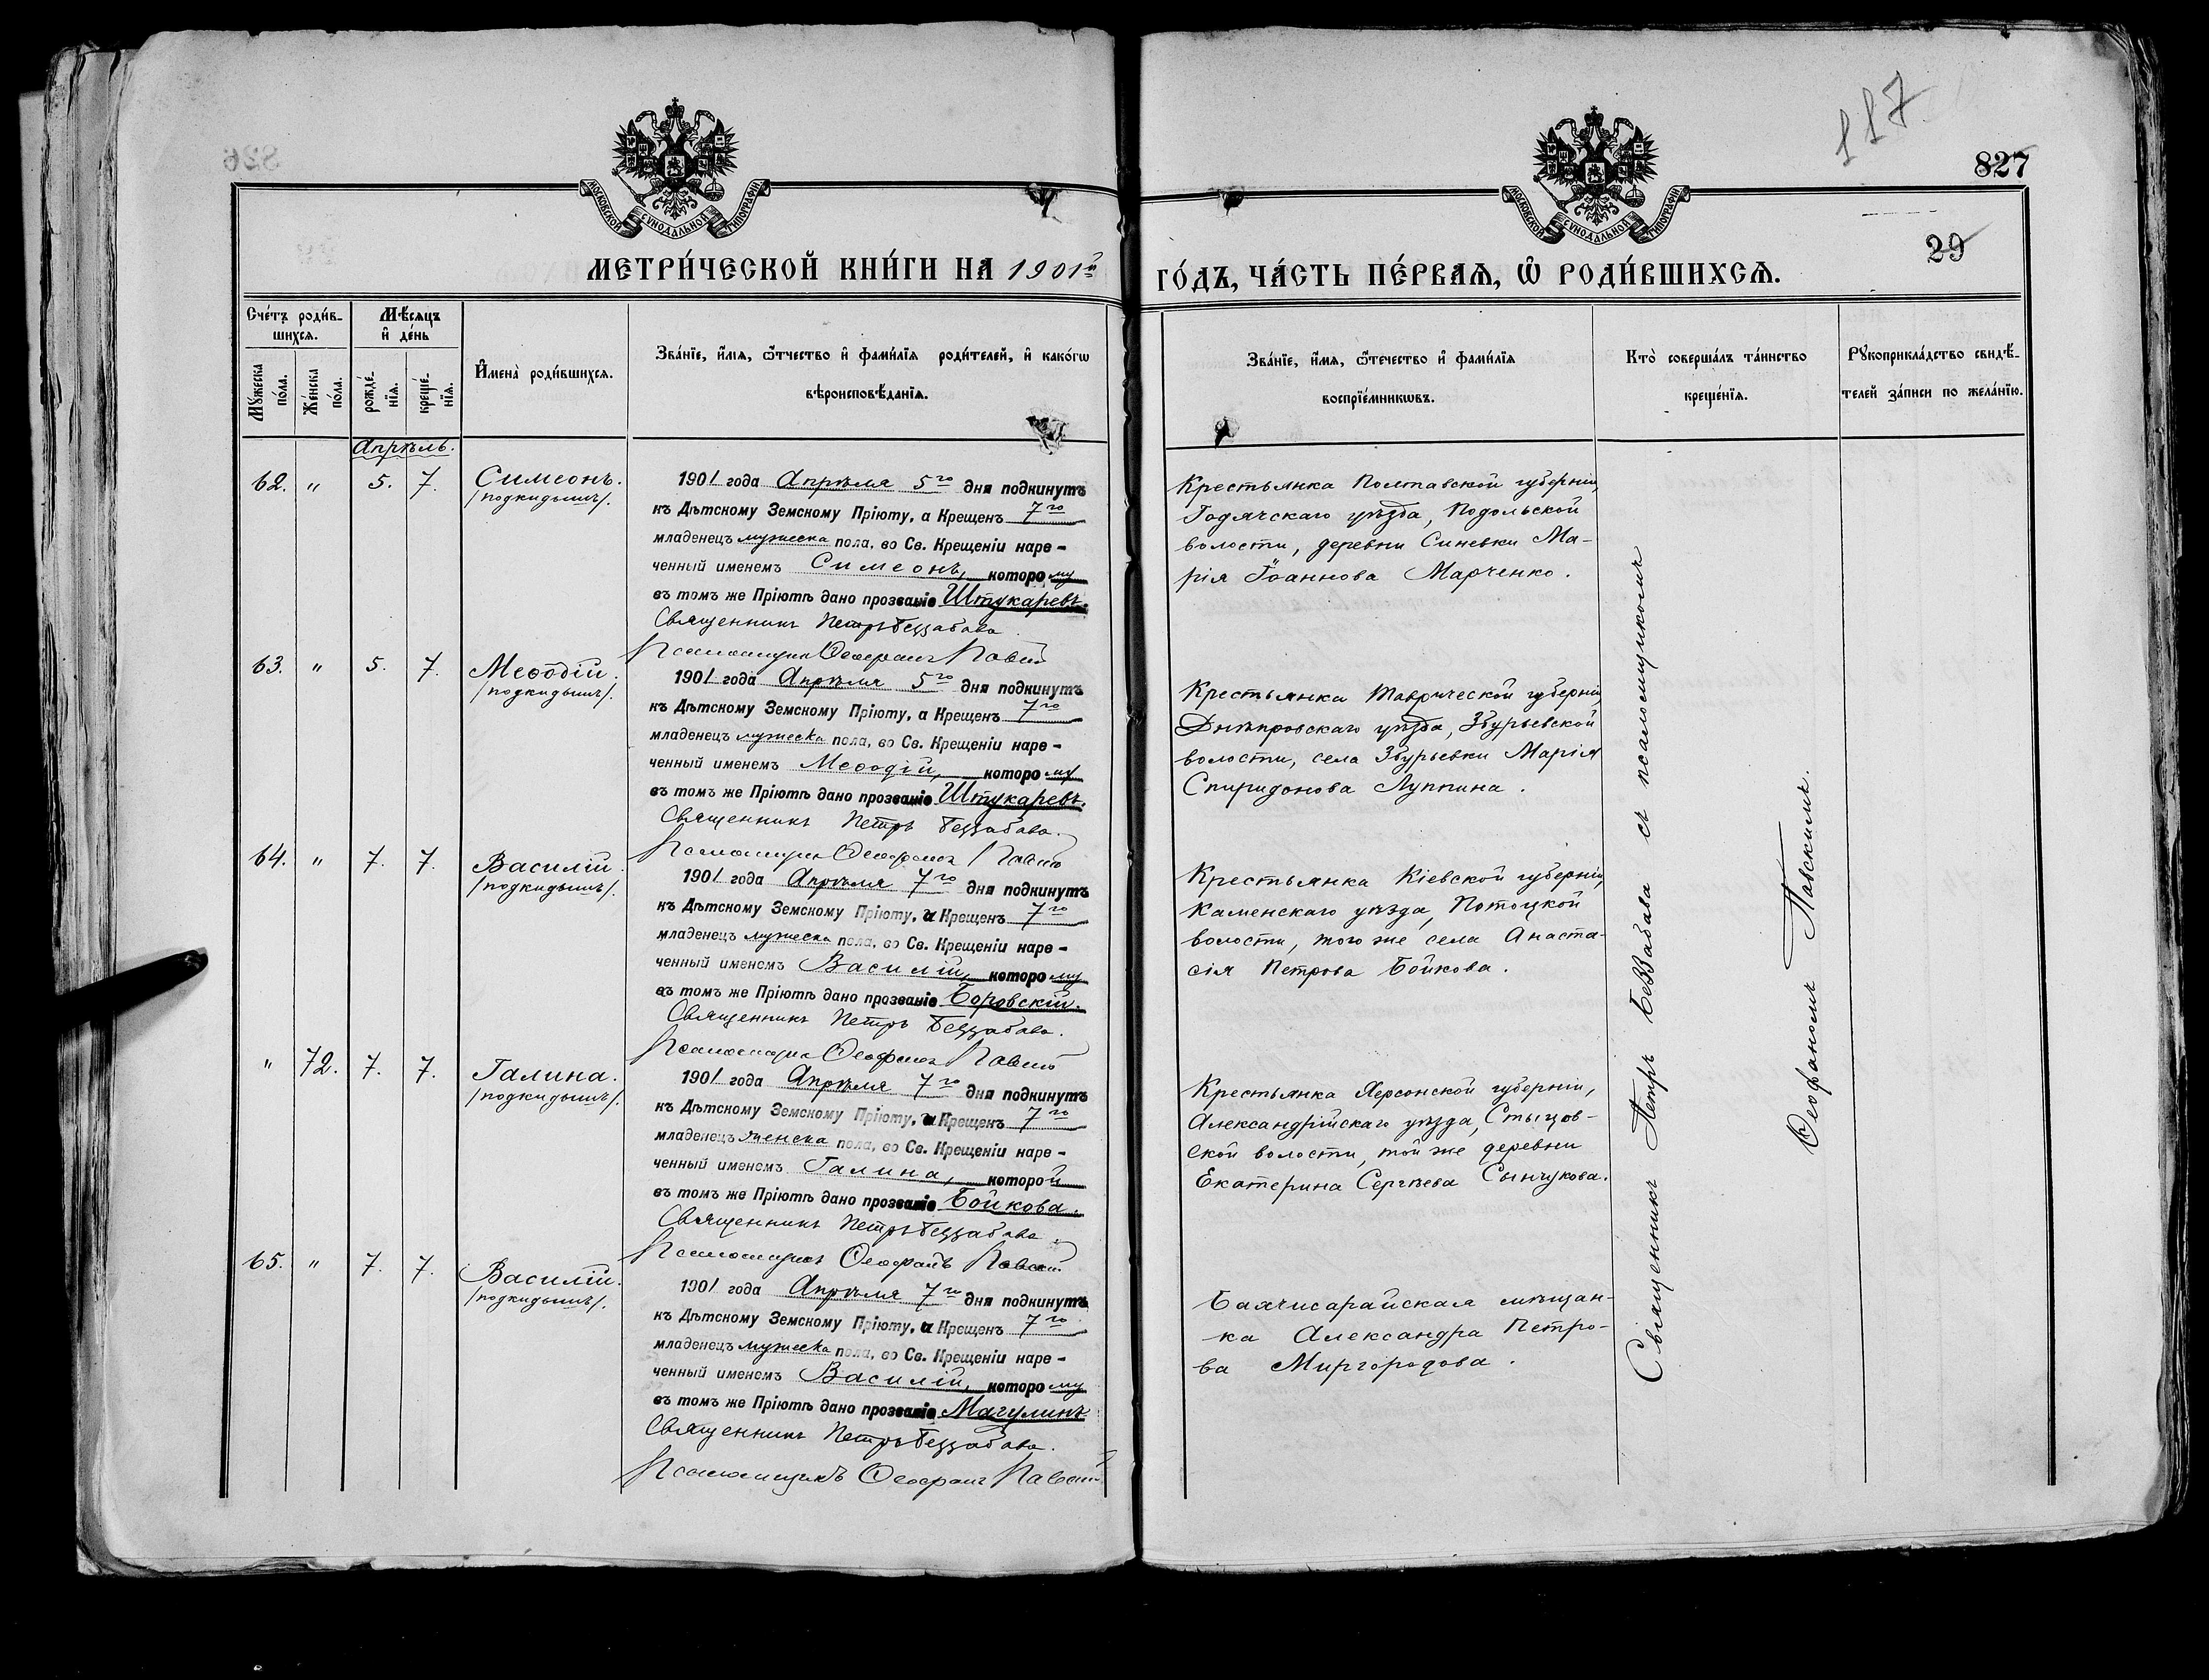 117
827
29
МОСКОВСКОЙ СѴНОДАЛЬНОЙ ТИПОГРАФІИ
МОСКОВСКОЙ СѴНОДАЛЬНОЙ ТИПОГРАФІИ
МЕТРИ́ЧЕСКОЙ КНИ́ГИ НА 1901й
ГО́ДЪ, ЧА́СТЬ ПЕ́РВАѦ, Ѽ РОДИ́ВШИХСѦ.
Сче́тъ роди́в-
шихсѧ.
Мѣ́сѧцъ
и҆ де́нь
Мꙋ́жеска
по́ла.
Же́нска
по́ла.
рожде́-
нїѧ.
креще́-
нїѧ.
И҆мена̀ роди́вшихсѧ.
Зва́нїе, и҆́мѧ, ѻ҆́тчество и҆ фами́лїѧ роди́телей, и҆ како́гѡ
вѣроисповѣ́данїѧ.
Зва́нїе, и҆́мѧ, ѻ҆те́чество и҆ фами́лїѧ
воспрїе́мникѡвъ.
Кто̀ соверша́лъ та́инство
креще́нїѧ.
Рꙋкоприкла́дство свидѣ́-
телей за́писи по жела́нїю.
Апрѣль.
62. " 5. 7. Симеонъ.
/подкидышъ/.
1901 года Апрѣля 5го дня подкинутъ
къ Дѣтскому Земскому Пріюту, а Крещенъ 7го
младенецъ мужеска пола, во Св. Крещеніи наре-
ченный именемъ Симеонъ, которому
въ томъ же Пріютѣ дано прозваніе Штукаревъ.
Священникъ Петръ Беззабава
Псаломщикъ Ѳеофанъ Павскій
Крестьянка Полтавской губерніи,
Гадячскаго уѣзда, Подольской
волости, деревни Синевки Ма-
рія Іоаннова Марченко.
63. " 5. 7. Меѳодій.
/подкидышъ/.
1901 года Апрѣля 5го дня подкинутъ
къ Дѣтскому Земскому Пріюту, а Крещенъ 7го
младенецъ мужеска пола, во Св. Крещеніи наре-
ченный именемъ Меѳодій, которому
въ томъ же Пріютѣ дано прозваніе Штукаревъ.
Священникъ Петръ Беззабава.
Псаломщикъ Ѳеофанъ Павскій
Крестьянка Таврической губерніи,
Днѣпровскаго уѣзда, Збурьевской
волости, села Збурьевки Марія
Спиридонова Луппина.
64. " 7. 7. Василій.
/подкидышъ/.
1901 года Апрѣля 7го дня подкинутъ
къ Дѣтскому Земскому Пріюту, а Крещенъ 7го
младенецъ мужеска пола, во Св. Крещеніи наре-
ченный именемъ Василій, которому
въ томъ же Пріютѣ дано прозваніе Боровскій.
Священникъ Петръ Беззабава.
Псаломщикъ Ѳеофанъ Павскій
Крестьянка Кіевской губерніи,
Каменскаго уѣзда, Потоцкой
волости, того же села Анаста-
сія Петрова Бойкова.
" 72. 7. 7. Галина.
/подкидышъ/.
1901 года Апрѣля 7го дня подкинутъ
къ Дѣтскому Земскому Пріюту, а Крещенъ 7го
младенецъ женска пола, во Св. Крещеніи наре-
ченный именемъ Галина, которой
въ томъ же Пріютѣ дано прозваніе Бойкова.
Священникъ Петръ Беззабава.
Псаломщикъ Ѳеофанъ Павскій
Крестьянка Херсонской губерніи,
Александрійскаго уѣзда, Стыцов-
ской волости, той же деревни
Екатерина Сергѣева Сынчукова.
65. " 7. 7. Василій.
/подкидышъ/.
1901 года Апрѣля 7го дня подкинутъ
къ Дѣтскому Земскому Пріюту, а Крещенъ 7го
младенецъ мужеска пола, во Св. Крещеніи наре-
ченный именемъ Василій, которому
въ томъ же Пріютѣ дано прозваніе Магулинъ
Священникъ Петръ Беззабава.
Псаломщикъ Ѳеофанъ Павскій
Бахчисарайская мѣщан-
ка Александра Петро-
ва Миргородова.
Священникъ Петръ Беззабава съ псаломщикомъ
Ѳеофаномъ Павскимъ.